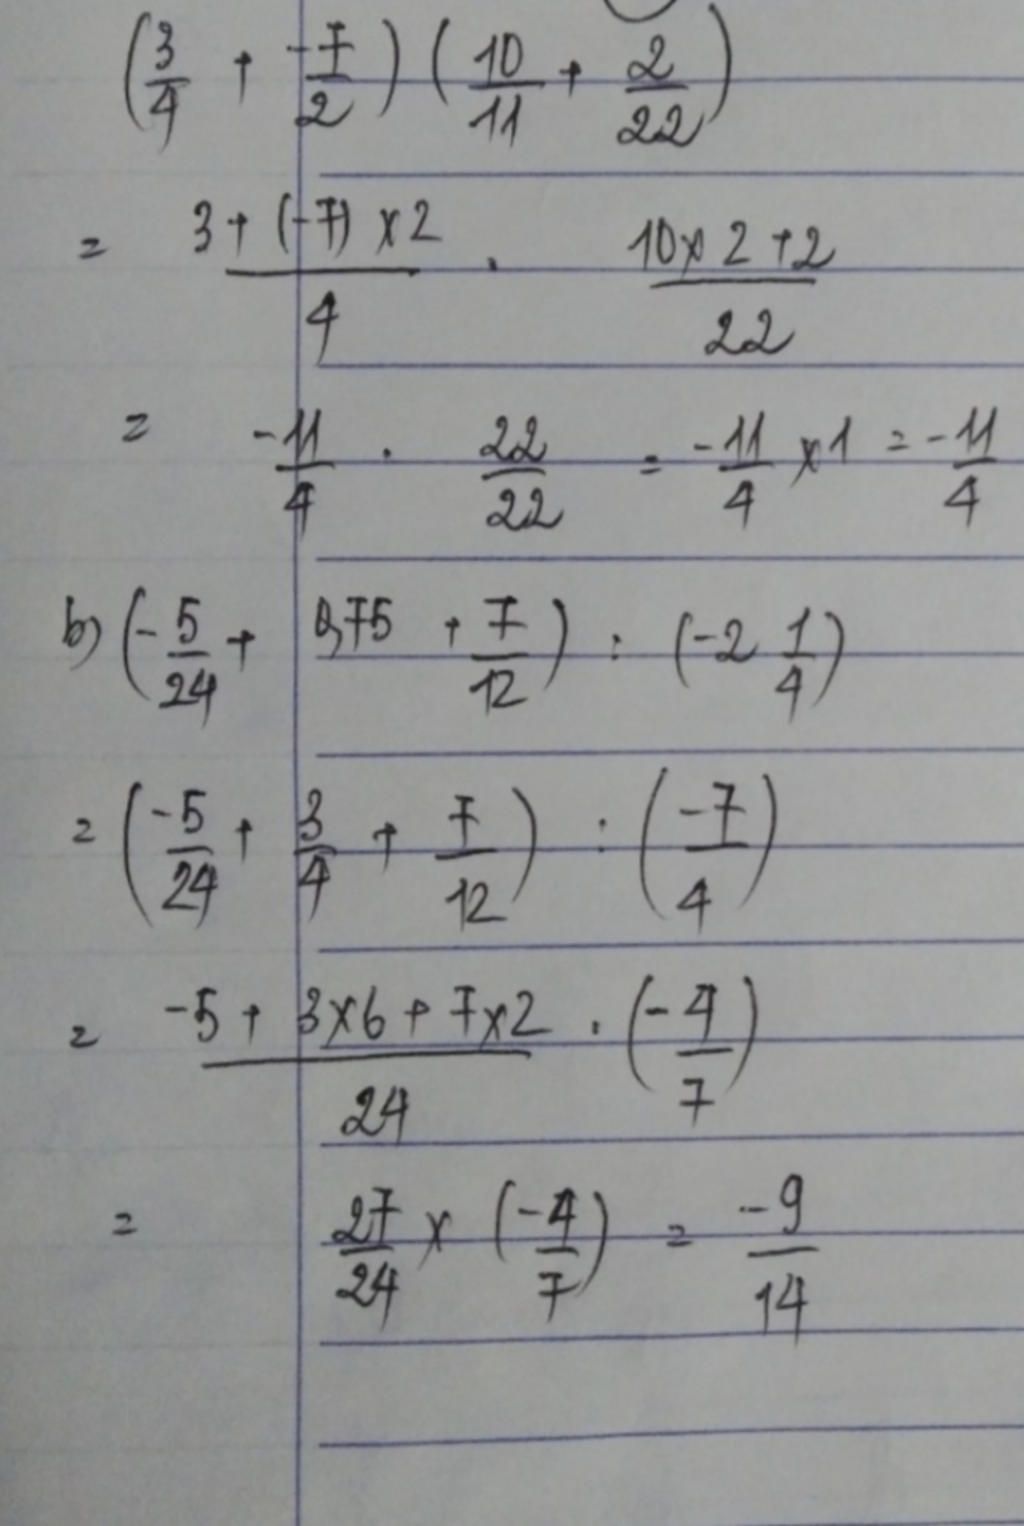 (3/4 + -7/2) (10/11 + 2/22)
= 3 + (-7) x 2/4 . 10 x 2 + 2/22
= -11/4 . 22/22 = -11/4 x 1 = -11/4
b) (-5/24 + 0,75 + 7/12) : (-2 1/4)
= (-5/24 + 3/4 + 7/12) : (-7/4)
= -5 + 3x6 + 7x2/24 . (-4/7)
= 27/24 x (-4/7) = -9/14